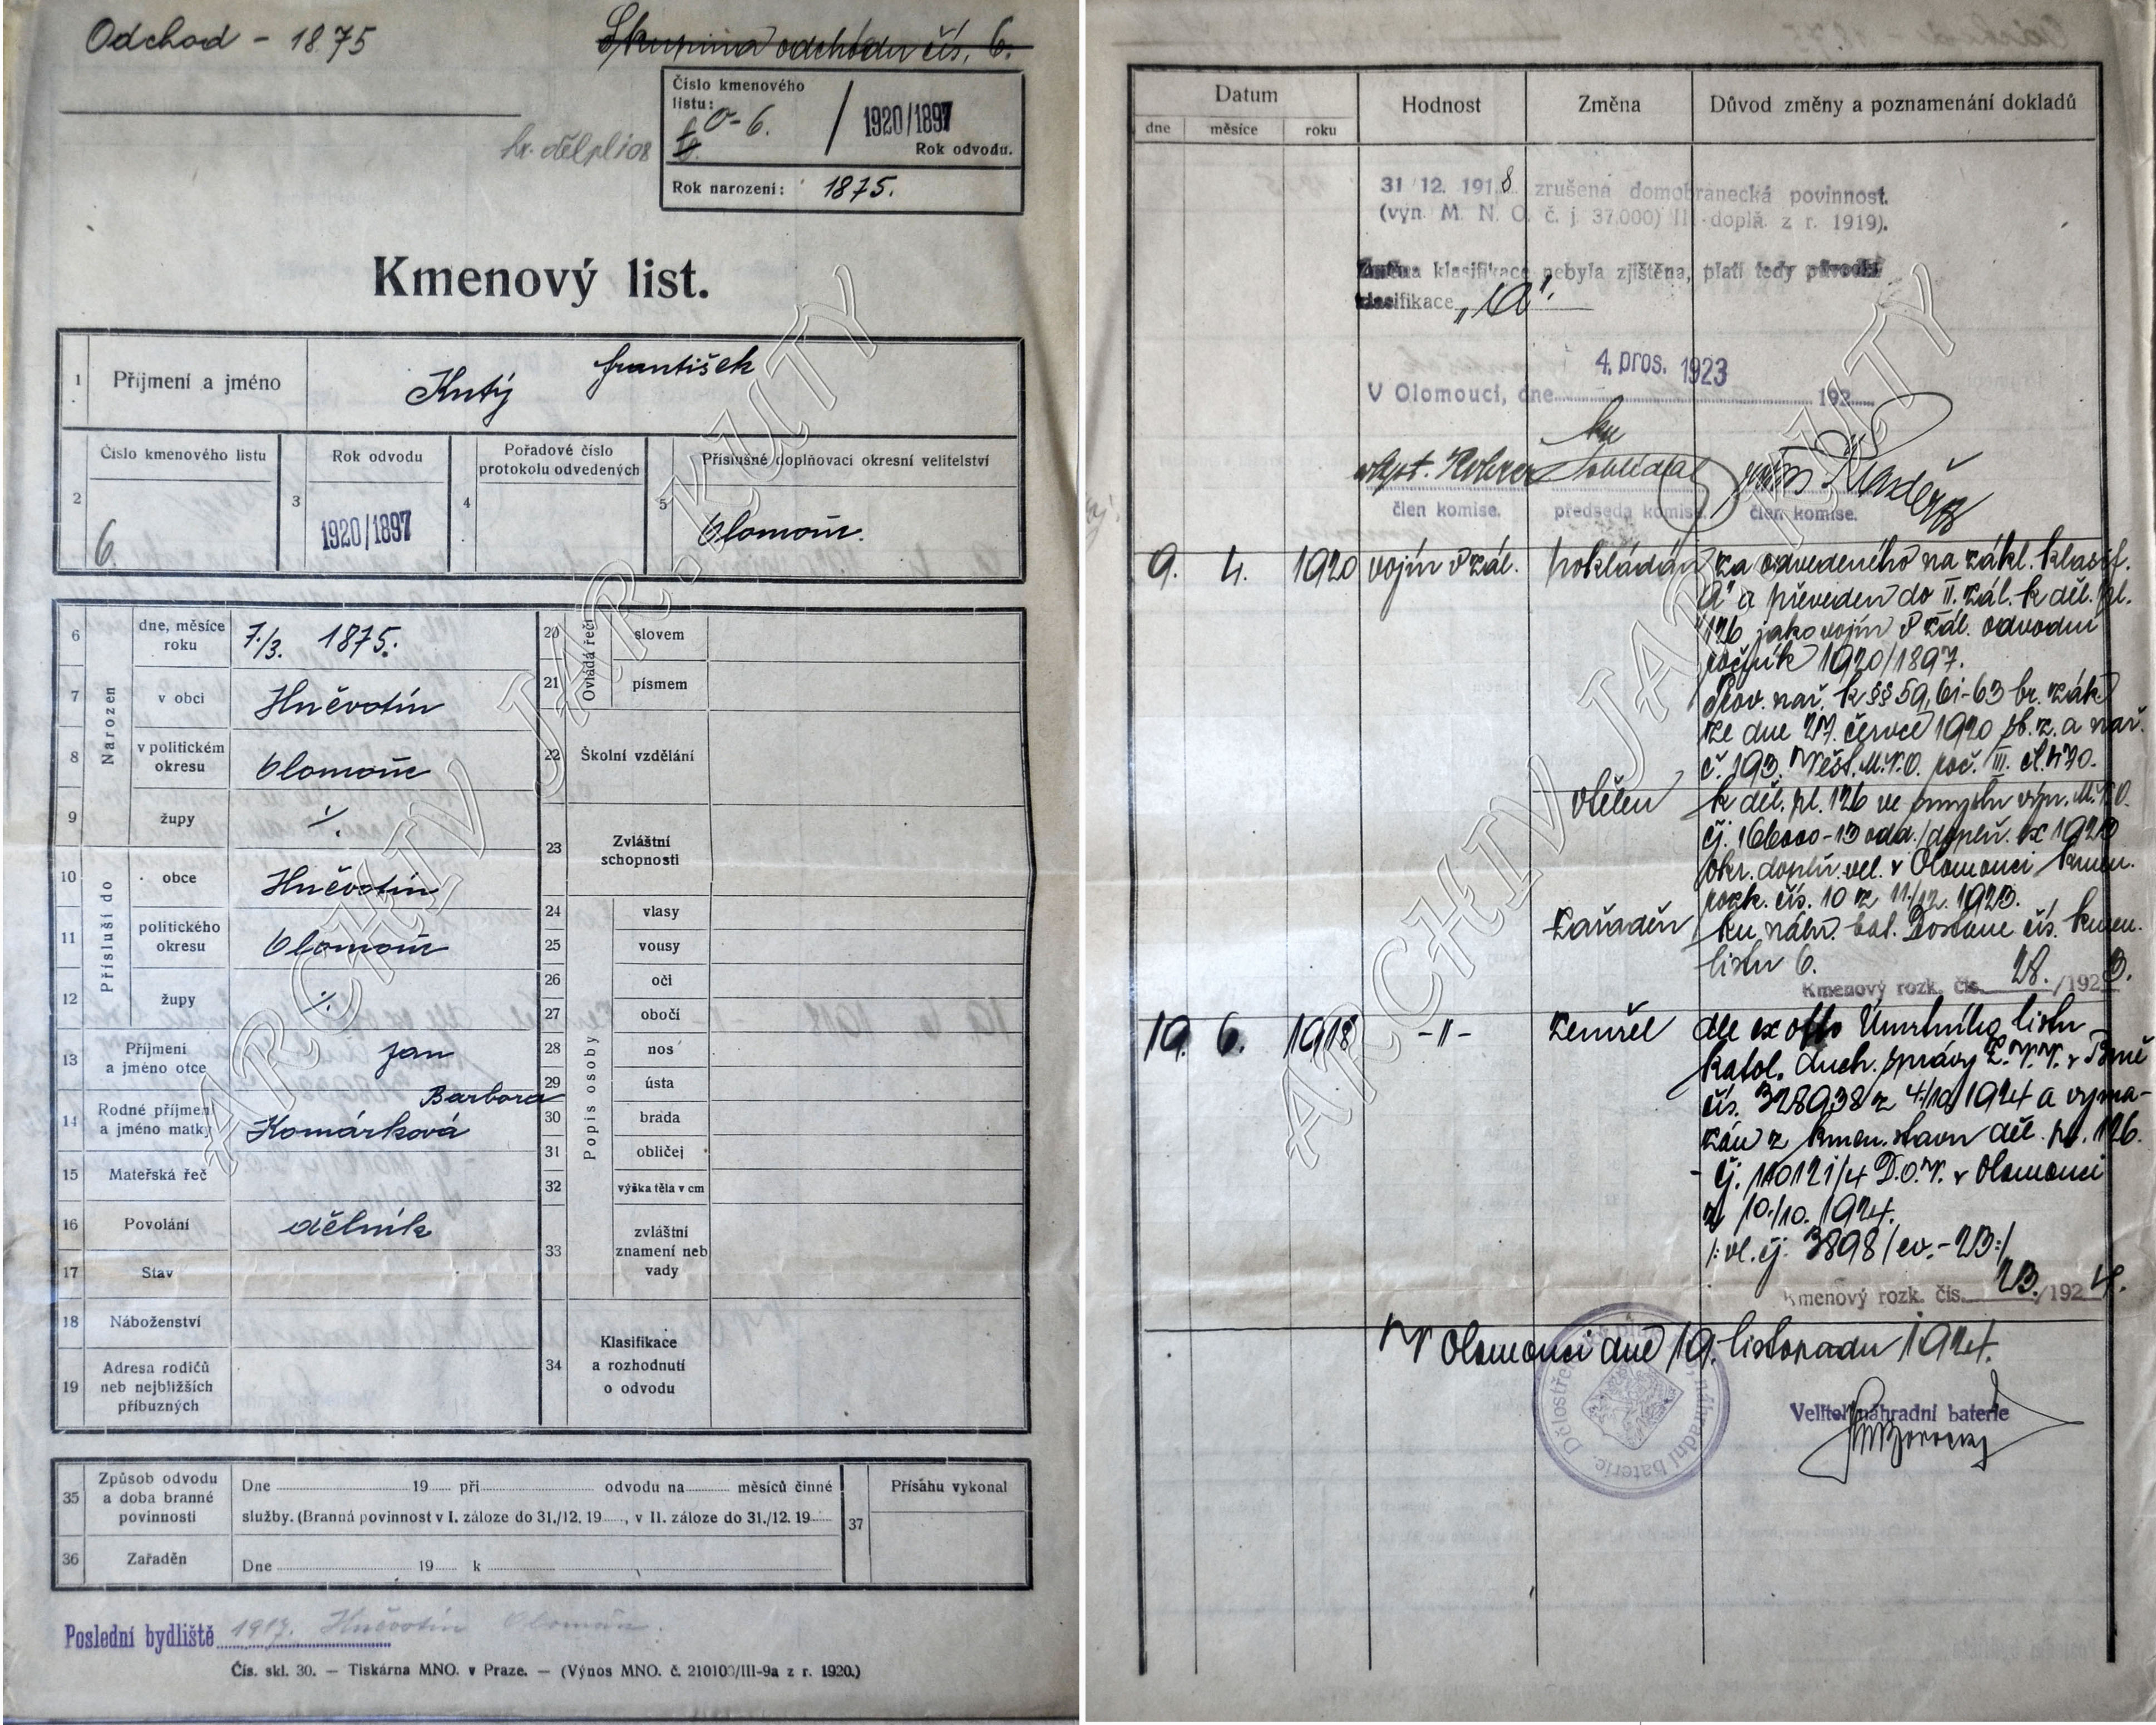 Odchod - 1875
Skupina odchodu čís. 6.
Číslo kmenového
listu:
0-6. / 1920/1897
Rok odvodu.
Rok narození: 1875.
Kmenový list.
1 Příjmení a jméno Kutý František
2 Číslo kmenového listu 6.
3 Rok odvodu 1920/1897
4 Pořadové číslo
protokolu odvedených
5 Příslušné doplňovací okresní velitelství
Olomouc.
Narozen
6 dne, měsíce
roku 7./3. 1875.
7 v obci Hněvotín
8 v politickém
okresu Olomouc
9 župy ∕.
Přísluší do
10 obce Hněvotín
11 politického
okresu Olomouc
12 župy ∕.
13 Příjmení
a jméno otce Jan
14 Rodné příjmení
a jméno matky Komárková Barbora
15 Mateřská řeč
16 Povolání dělník
17 Stav
18 Náboženství
19 Adresa rodičů
neb nejbližších
příbuzných
Ovládá řeči
20 slovem
21 písmem
22 Školní vzdělání
23 Zvláštní
schopnosti
Popis osoby
24 vlasy
25 vousy
26 oči
27 obočí
28 nos
29 ústa
30 brada
31 obličej
32 výška těla v cm
33 zvláštní
znamení neb
vady
34 Klasifikace
a rozhodnutí
o odvodu
35 Způsob odvodu
a doba branné
povinnosti
Dne 19 při odvodu na měsíců činné
služby. (Branná povinnost v I. záloze do 31./12. 19 , v II. záloze do 31./12. 19
36 Zařaděn
Dne 19 k
37 Přísahu vykonal
Poslední bydliště 1917. Hněvotín Olomouc.
Čís. skl. 30. — Tiskárna MNO. v Praze. — (Výnos MNO. č. 210100/III-9a z r. 1920.)
ARCHIV JAR. KUTY
Datum
dne měsíce roku
Hodnost
Změna
Důvod změny a poznamenání dokladů
31 12. 1918 zrušena domobranecká povinnost.
(vyn. M. N. O. č. j. 37.000) II doplň. z r. 1919).
Změna klasifikace nebyla zjištěna, platí tedy původní
klasifikace „A".
4. pros. 1923
V Olomouci, dne 192
člen komise. předseda komise. člen komise.
9. 4. 1920 vojín v zál. pokládán za odvedeného na zákl. klasif.
„A" a převeden do II. zál. k děl. pl.
126 jako vojín v zál. odvodní
ročník 1920/1897.
Prov. nař. k §§ 59, 61-63 br. zák.
ze dne 27. července 1920 sb. z. a nař.
č. 193. Věst. M.N.O. roč. III. čl. 470.
vtělen k děl. pl. 126 ve smyslu výn. M.N.O.
čj. 166000-13 odd./doplň. ex 1923
okr. doplň. vel. v Olomouci kmen.
rozk. čís. 10 z 11./12. 1923.
zařaděn ku náhr. bat. Dostane čís. kmen.
listu 6.
Kmenový rozk. čís. 28. /1923.
19. 6. 1918 -"- zemřel dle ex offo Úmrtního listu
katol. duch. správy Z.V.V. v Brně
čís. 328938 z 4/10 1924 a vyma-
zán z kmen. stavu děl. pl. 126.
- čj. 110121/4 D.O.V. v Olomouci
z 10./10. 1924.
/: vl. čj. 3898/ev.-23:/
Kmenový rozk. čís. 23. /1924.
V Olomouci dne 19. listopadu 1924.
Velitel náhradní baterie
náhradní baterie.
ARCHIV JAR. KUTY